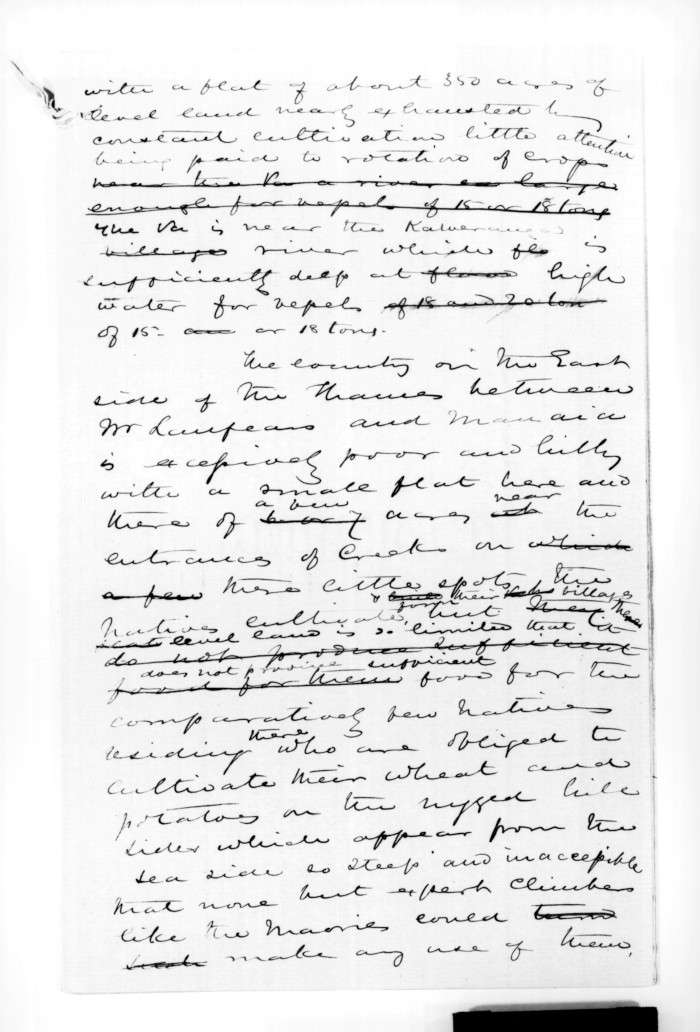 with a flat of about 350 acres of
level land nearly exhausted by
constant cultivation little attention
being paid to rotation of crops
near the Pa a river large
enough for vessels of 15 or 18 tons
The Pa is near the
village river which is
sufficiently deep at high
water for vessels of 18 and 20 ton
of 15 or 18 tons.
The country on the East
side of the Thames between
Mr Lanfears and Manaia
is excessively poor and hilly
with a small flat here and
a few near
there of acres the
entrances of Creeks on which
a few these little spots the
& form their villages
Natives cultivate but there
level land is so limited that it
do not produce sufficient
does not produce sufficient
food for them food for the
comparatively few Natives
there
residing who are obliged to
cultivate their wheat and
potatoes on the rugged hill
sides which appear from the
sea side so steep and inaccessible
that none but expert climbers
like the Maories could
make any use of them.